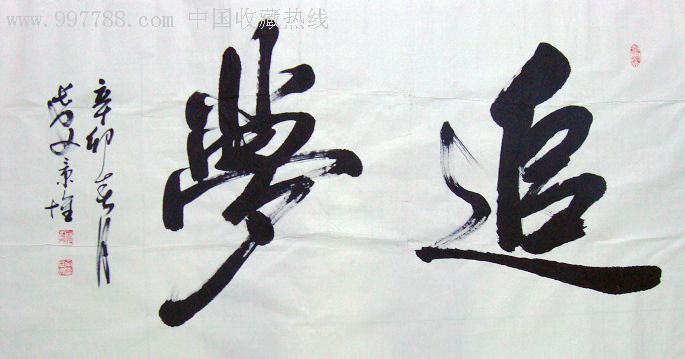 www.997788.com 中国收藏热线
追夢
辛卯春月